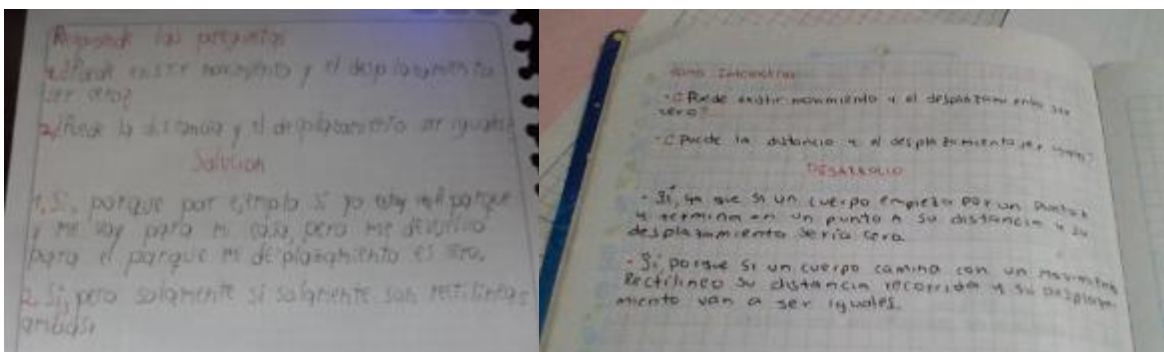 Responde las preguntas
1. ¿Puede existir movimiento y el desplazamiento
ser cero?
2. ¿Puede la distancia y el desplazamiento ser iguales?
Solución
1. Si, porque por ejemplo si yo estoy en el parque
y me voy para mi casa, pero me devuelvo
para el parque mi desplazamiento es cero.
2. Si, pero solamente si solamente son rectilineos
ambos.
-¿Puede existir movimiento y el desplazamiento ser
cero?
-¿Puede la distancia y el desplazamiento ser iguales?
DESARROLLO
- Si, ya que si un cuerpo empieza por un punto A
y termina en un punto A su distancia y su
desplazamiento sería cero.
- Si porque si un cuerpo camina con un movimiento
Rectilineo su distancia recorrida y su desplaza-
miento van a ser iguales.